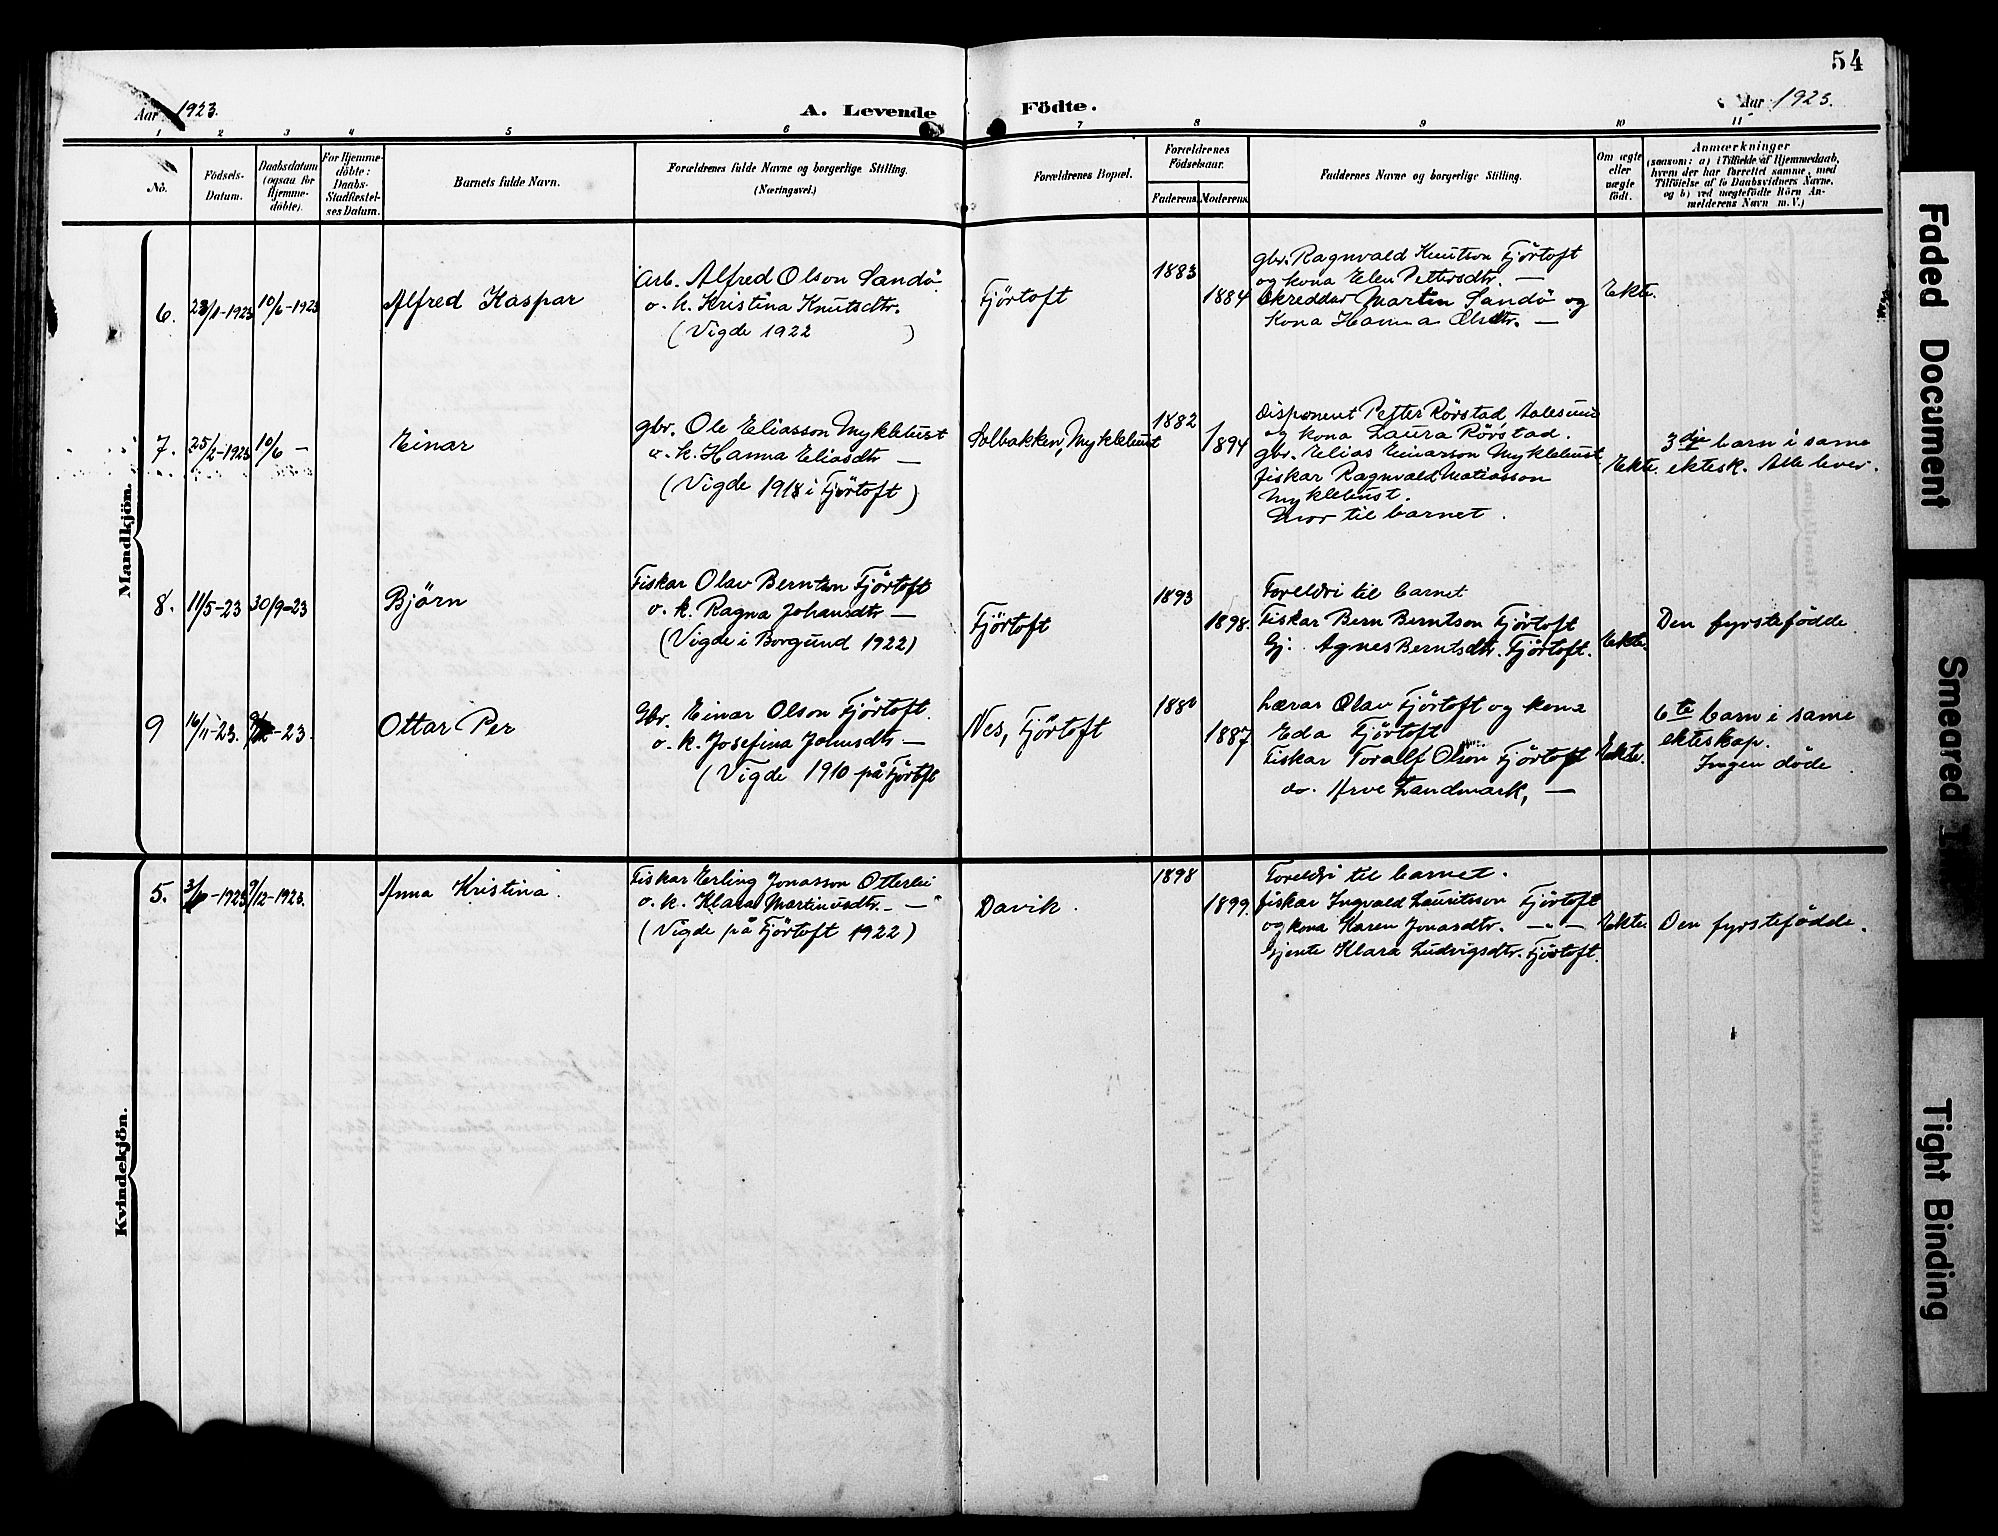 54
Aar 1923.
A. Levende Födte.
Aar 1923.
1 2 3 4 5 6 7 8 9 10 11
No.
Födsels-
Datum.
Daabsdatum
(ogsaa for
Hjemme-
döbte).
For Hjemme-
döbte:
Daabs-
Stadfæstel-
ses Datum.
Barnets fulde Navn.
Forældrenes fulde Navne og borgerlige Stilling.
(Næringsvei.)
Forældrenes Bopæl.
Forældrenes
Födselsaar.
Faderens. Moderens.
Faddernes Navne og borgerlige Stilling.
Om ægte
eller
uægte
födt.
Anmærkninger
(saasom: a) i Tilfælde af Hjemmedaab,
hvem der har forrettet samme, med
Tilföielse af to Daabsvidners Navne,
og b) ved uægtefödte Börn An-
melderens Navn m. V.)
Mandkjön.
6. 23/1-1923 10/6-1923
Alfred Kaspar
Arb. Alfred Olson Sandö
o. k. Kristina Knutsdtr.
(Vigde 1922 )
Fjörtoft
1883
1884
gbr. Ragnvald Knutson Fjörtoft
og kona Elen Pettersdtr. —
Skreddar Martin Sandö og
Kona Hanna Olsdtr. —
Ekte.
7. 25/2-1923 10/6 —
Einar
gbr. Ole Eliasson Myklebust
o. k. Hanna Eliasdtr —
(Vigde 1918 i Fjörtoft)
Solbakken, Myklebust
1882
1894
Disponent Petter Rörstad Aalesund
og kona Laura Rörstad.
gbr. Elias Einarson Myklebust
fiskar Ragnvald Matiasson
Myklebust.
Mor til barnet.
Ekte.
3dje barn i same
ektesk. Alle lever.
8. 11/5-23 30/9-23
Björn
Fiskar Olav Berntson Fjörtoft
o. k. Ragna Johansdtr —
(Vigde i Borgund 1922)
Fjörtoft
1893
1898.
Foreldri til barnet
Fiskar Bern Berntson Fjörtoft
Gj. Agnes Berntsdtr. Fjörtoft.
Ekte.
Den fyrstefödde
9 16/11-23. -23.
Ottar Per
Gbr. Einar Olson Fjörtoft.
o. k. Josefina Johnsdtr —
(Vigde 1910 på Fjörtoft
Nes, Fjörtoft
1887
Lærar Olav Fjörtoft og kona
Eda Fjörtoft
Fiskar Toralf Olson Fjörtoft
do. Arve Landmark, —
Ekte.
6te barn i same
ekteskap.
Ingen döde.
Kvindekjön.
5. -1923 9/12-1923.
Anna Kristina
Fiskar Erling Jonasson Otterlei
o. k. Klara Martinusdtr. — " —
(Vigde på Fjörtoft 1922)
Davik.
1898
1899.
Foreldri til barnet.
fiskar Ingvald Lauritsson Fjörtoft
og kona Karen Jonasdtr. — " —
Gjente Klara Ludvigsdtr. Fjörtoft.
Ekte.
Den fyrstefödde.
Faded Document
Smeared
Tight Binding